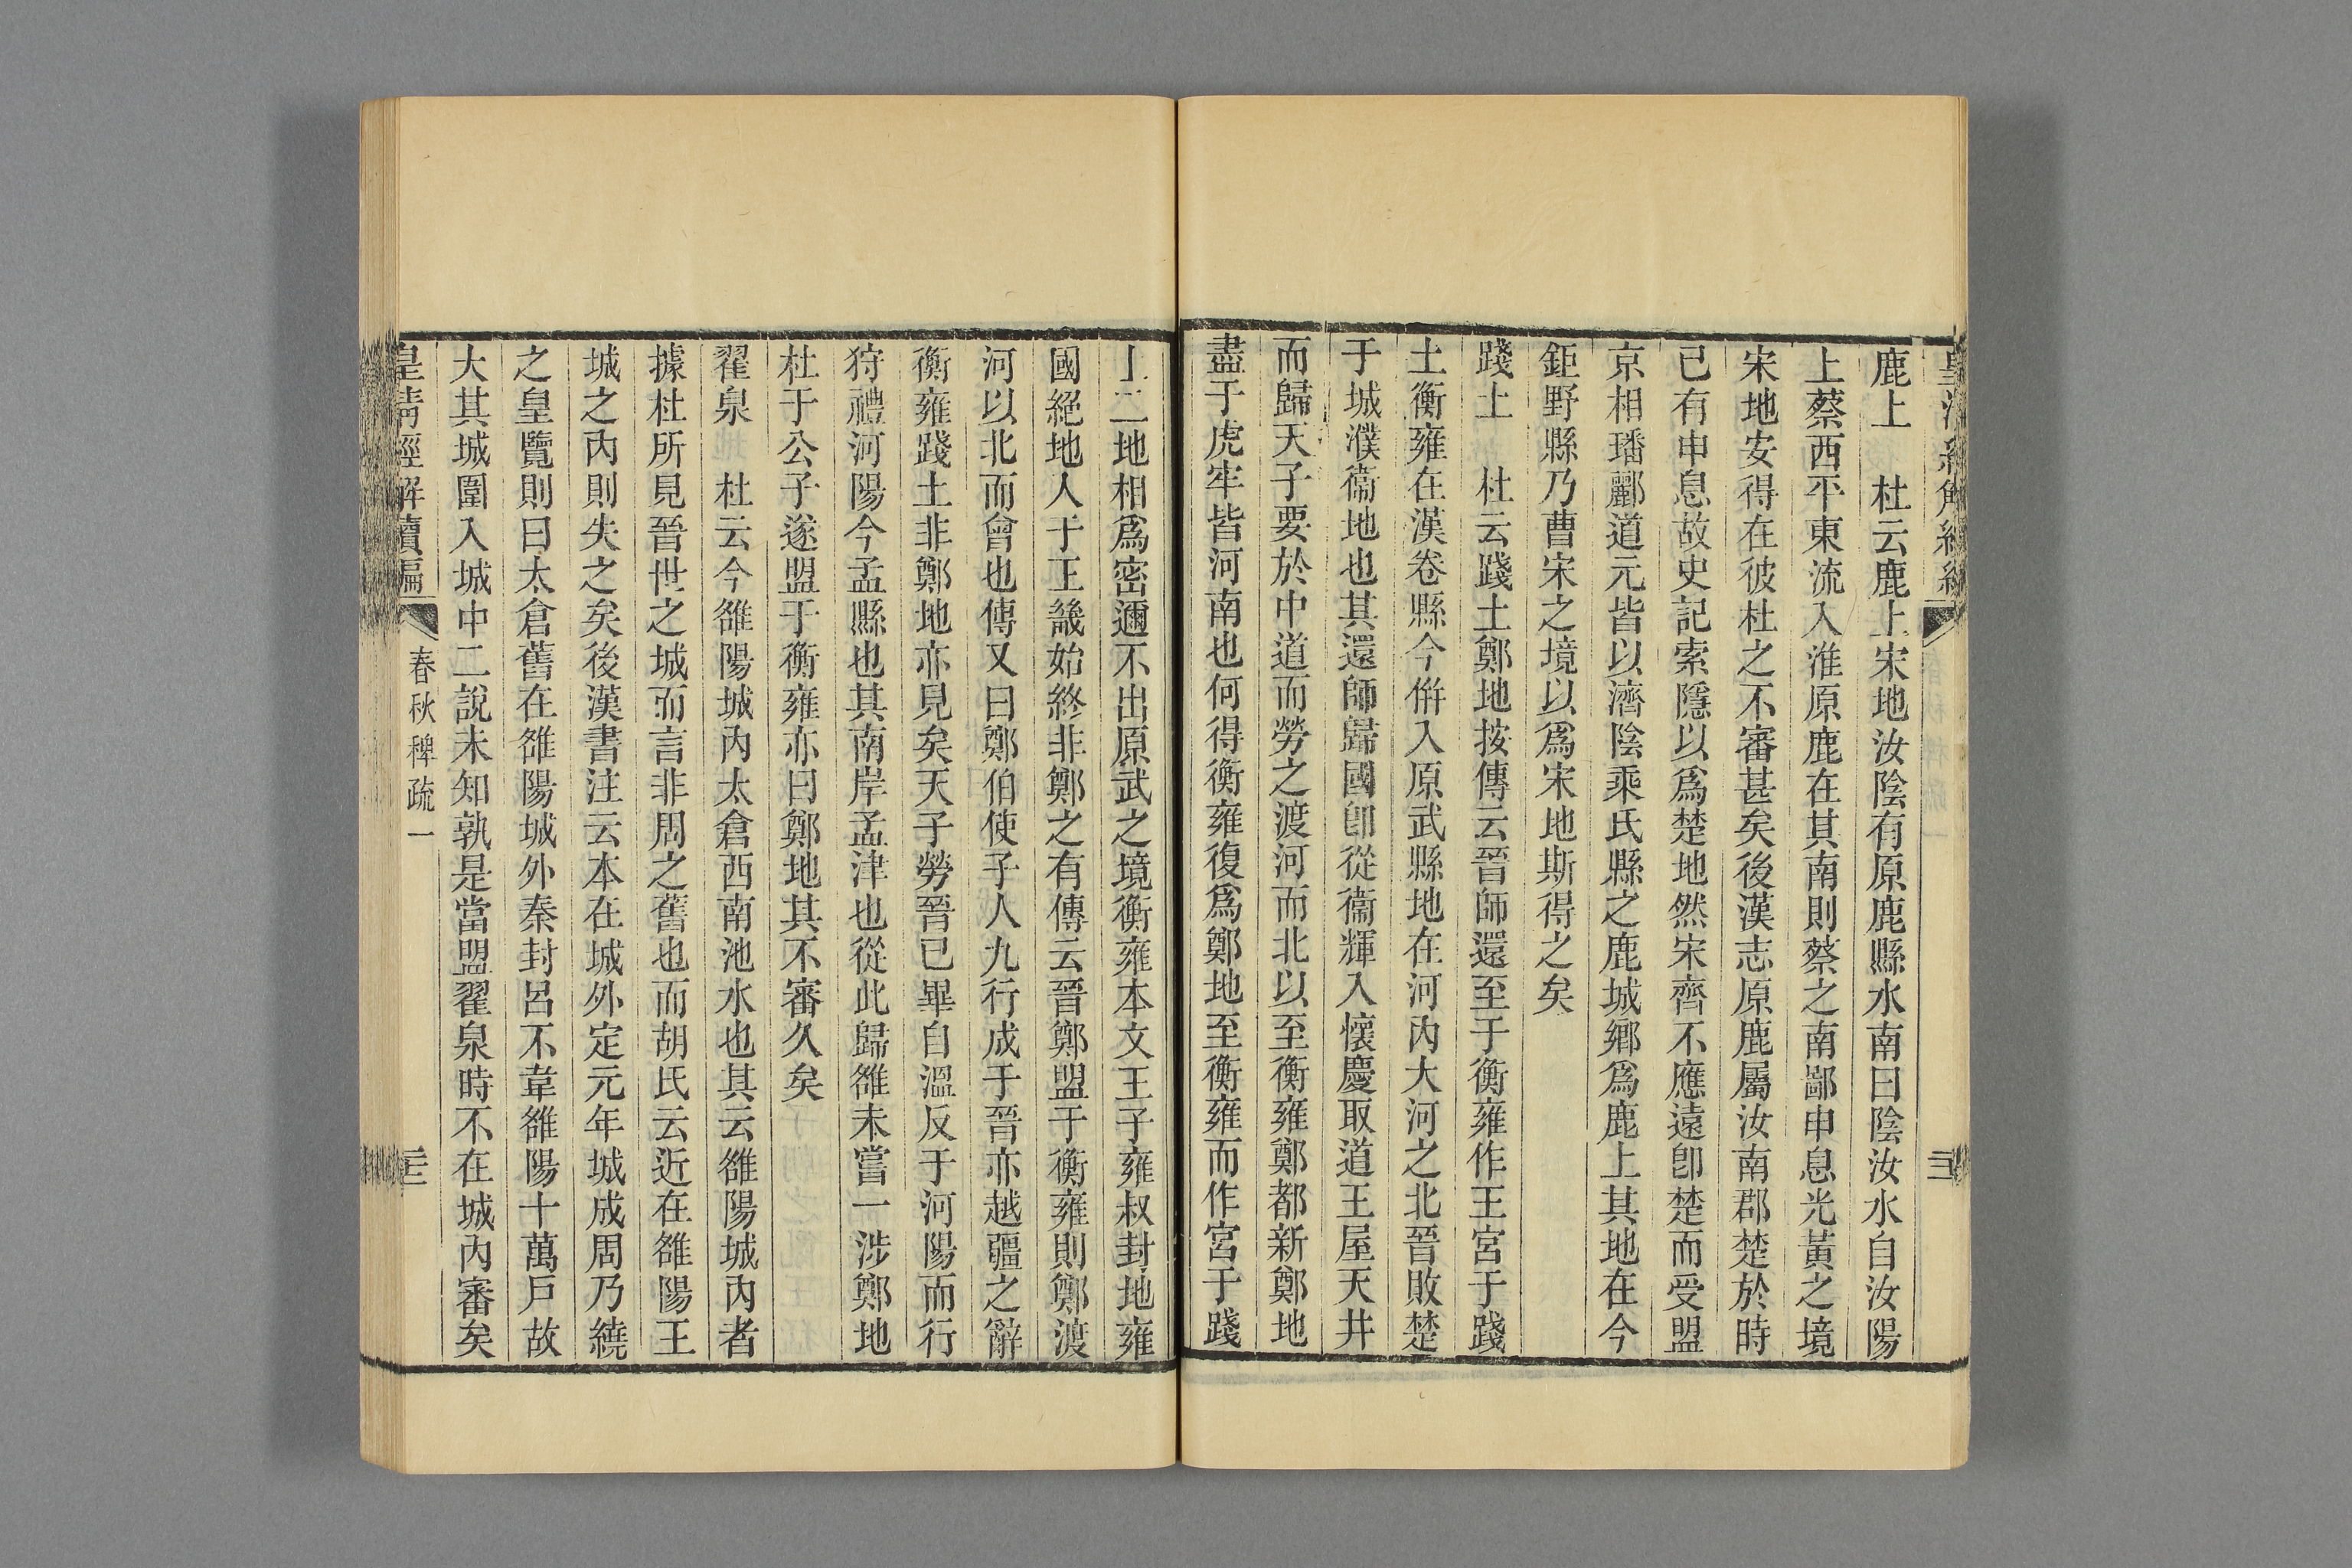 鹿上　杜云鹿上宋地汝陰有原鹿縣水南曰陰汝水自汝陽
上蔡西平東流入淮原鹿在其南則蔡之南鄙申息光黃之境
宋地安得在彼杜之不審甚矣後漢志原鹿屬汝南郡楚於時
已有申息故史記索隱以爲楚地然宋齊不應遠卽楚而受盟
京相璠酈道元皆以濟陰乘氏縣之鹿城鄉爲鹿上其地在今
鉅野縣乃曹宋之境以爲宋地斯得之矣
踐土　杜云踐土鄭地按傳云晉師還至于衡雍作王宮于踐
土衡雍在漢卷縣今併入原武縣地在河內大河之北晉敗楚
于城濮衞地也其還師歸國卽從衞輝入懷慶取道王屋天井
而歸天子要於中道而勞之渡河而北以至衡雍鄭都新鄭地
盡于虎牢皆河南也何得衡雍復爲鄭地至衡雍而作宮于踐
土二地相爲密邇不出原武之境衡雍本文王子雍叔封地雍
國絕地入于王畿始終非鄭之有傳云晉鄭盟于衡雍則鄭渡
河以北而會也傳又曰鄭伯使子人九行成于晉亦越疆之辭
衡雍踐土非鄭地亦見矣天子勞晉已畢自溫反于河陽而行
狩禮河陽今孟縣也其南岸孟津也從此歸雒未嘗一涉鄭地
杜于公子遂盟于衡雍亦曰鄭地其不審久矣
翟泉　杜云今雒陽城內太倉西南池水也其云雒陽城內者
據杜所見晉世之城而言非周之舊也而胡氏云近在雒陽王
城之內則失之矣後漢書注云本在城外定元年城成周乃繞
之皇覽則曰太倉舊在雒陽城外秦封呂不韋雒陽十萬戶故
大其城圍入城中二說未知孰是當盟翟泉時不在城內審矣
皇清經解續編
春秋稗疏一